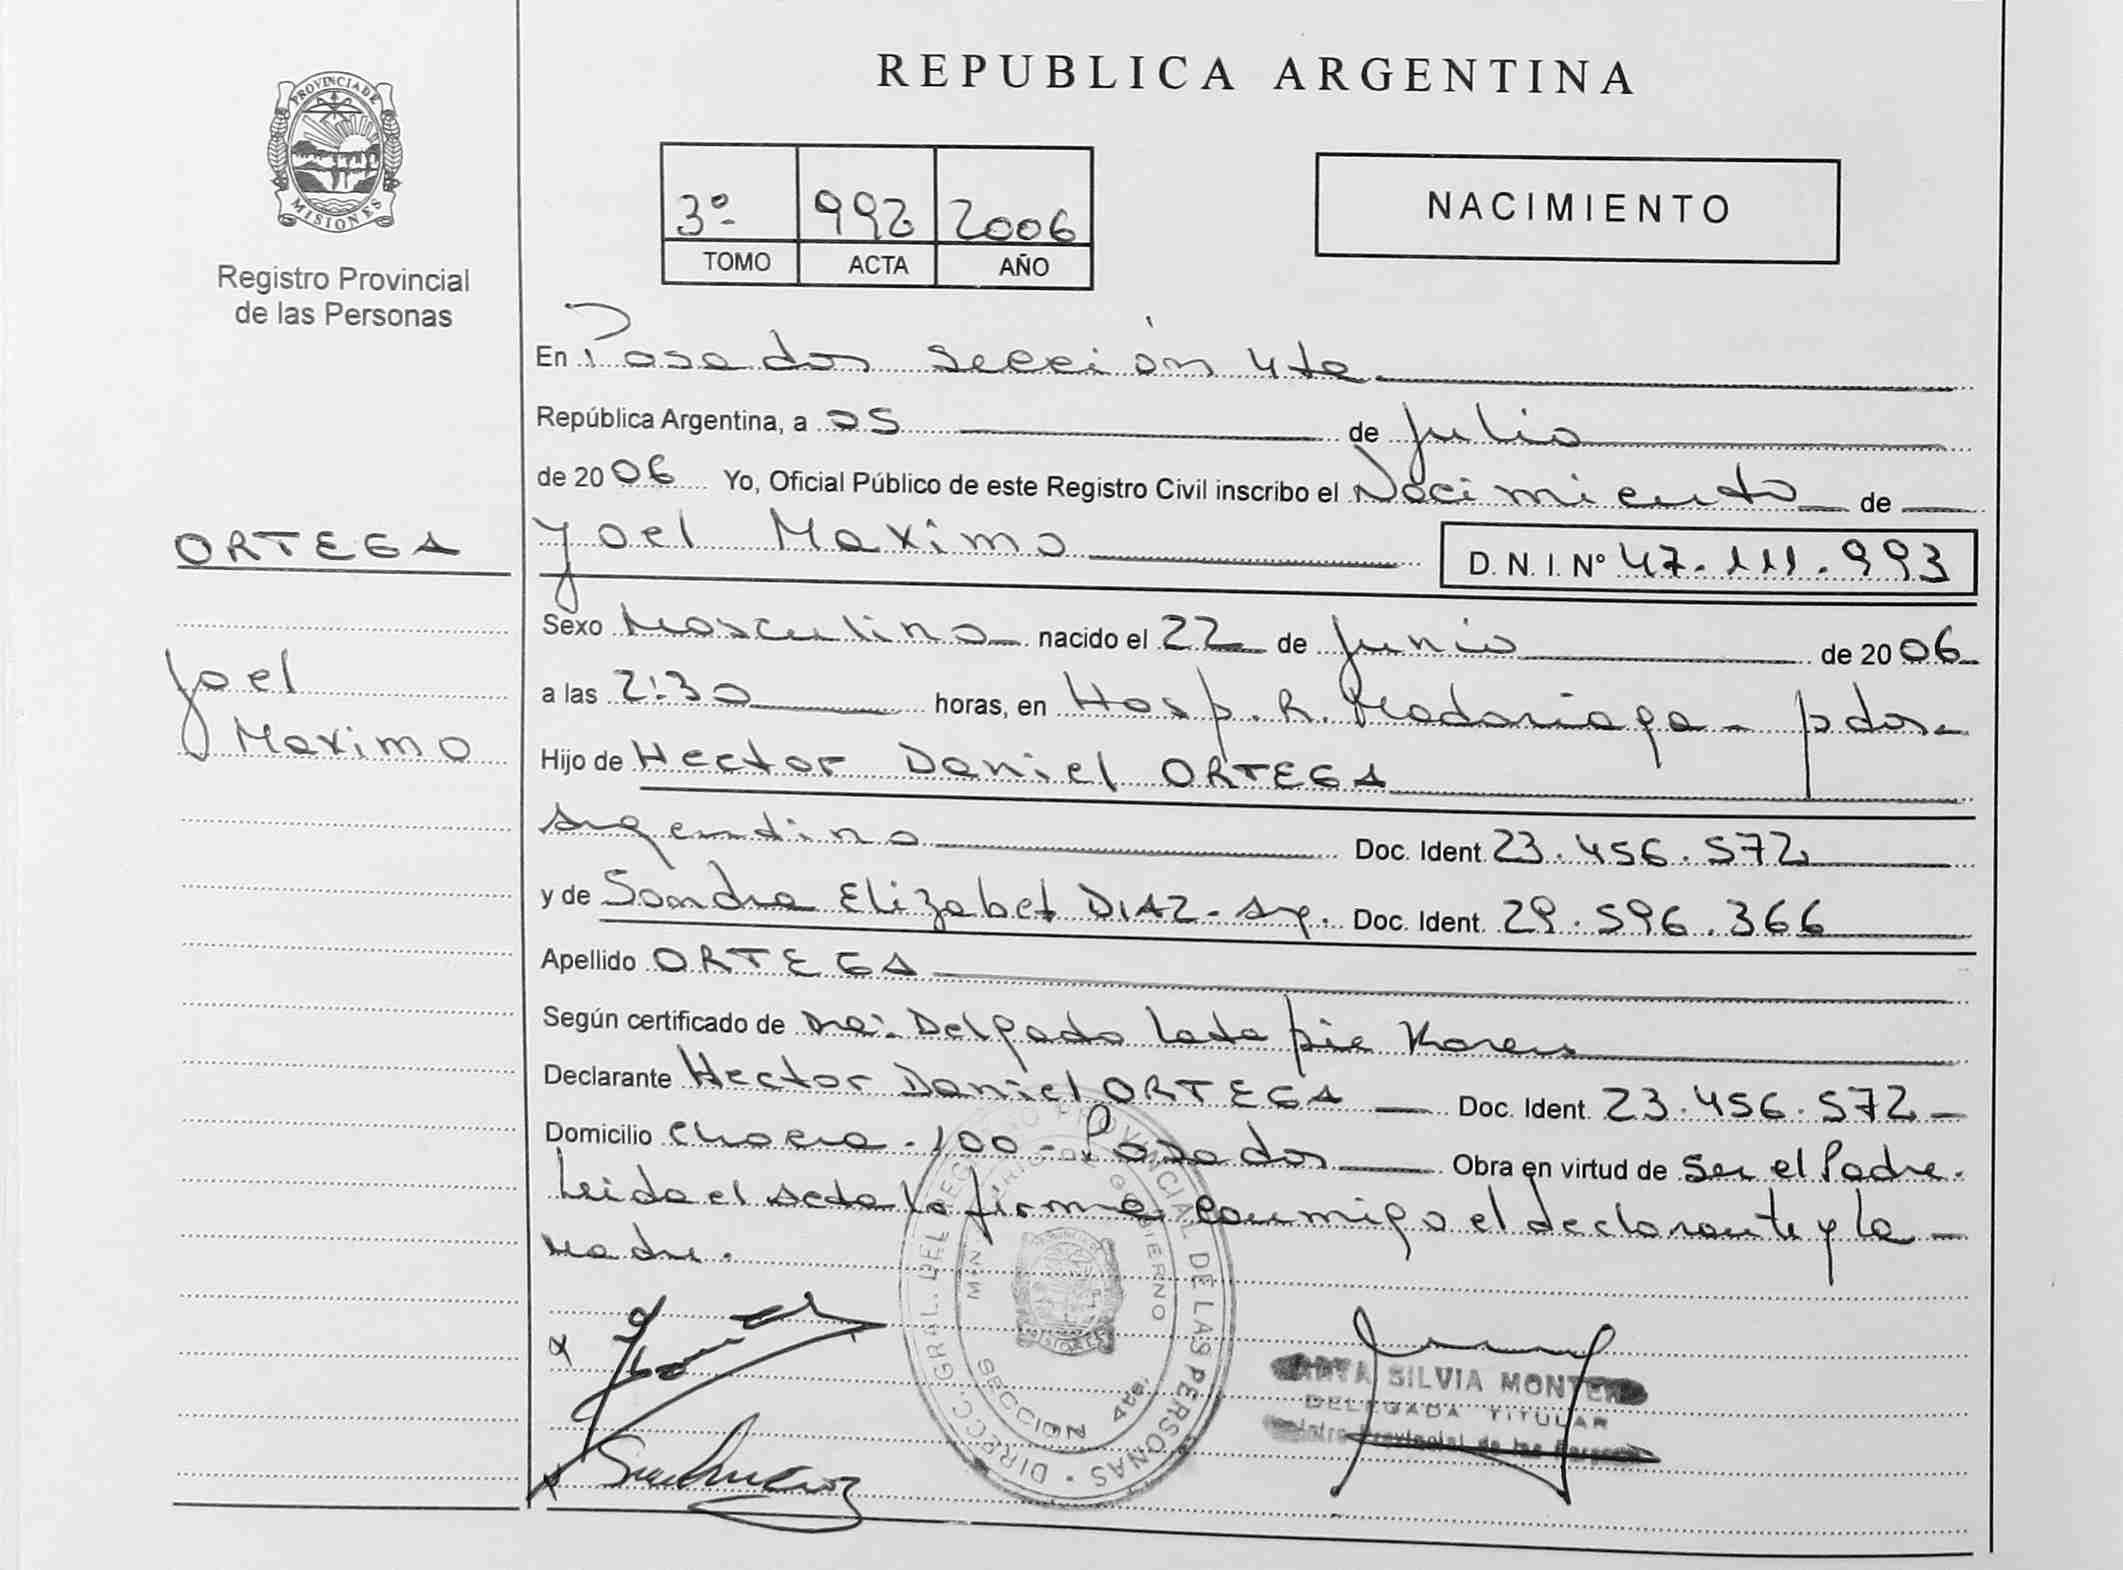 PROVINCIA DE
MISIONES
Registro Provincial
de las Personas
ORTEGA
Joel
Maximo
REPUBLICA ARGENTINA
3º 992 2006
TOMO ACTA AÑO
NACIMIENTO
En Posadas sección 4ta
República Argentina, a 05 de Julio
de 2006 Yo, Oficial Público de este Registro Civil inscribo el Nacimiento de
Joel Maximo D. N. I. Nº 47.111.993
Sexo Masculino nacido el 22 de Junio de 2006
a las 2:30 horas, en Hosp. R. Madariaga - pdas-
Hijo de Hector Daniel ORTEGA
Argentino Doc. Ident. 23.456.572
y de Sandra Elizabet DIAZ - Arg. Doc. Ident. 29.596.366
Apellido ORTEGA
Según certificado de Dra: Delgado Karen
Declarante Hector Daniel ORTEGA Doc. Ident. 23.456.572
Domicilio Chacra - 100 - Posadas Obra en virtud de Ser el Padre.
Leida el acta la firma conmigo el declarante y la
Madre.
DIRECC. GRAL. DEL REGISTRO PROVINCIAL DE LAS PERSONAS
MINISTERIO DE GOBIERNO
MISIONES
SECCION 4ta.
SILVIA MONTERO
DELEGADA TITULAR
Registro Provincial de las Personas